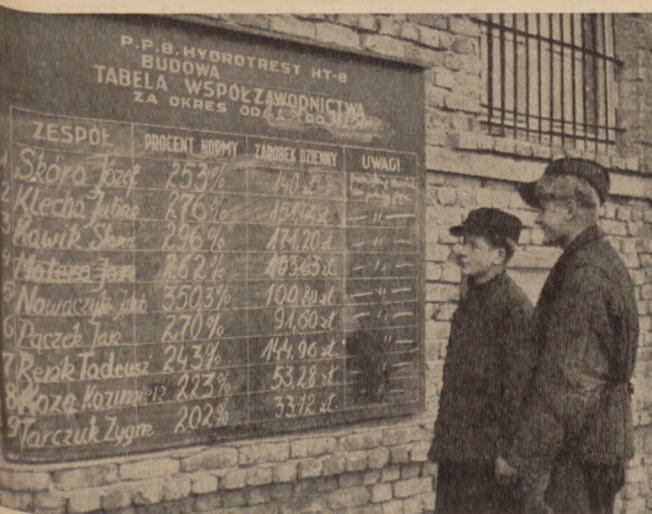 P.P.B. HYDROTREST HT-8
BUDOWA
TABELA WSPÓŁZAWODNICTWA
ZA OKRES OD DO
ZESPÓŁ PROCENT NORMY ZAROBEK DZIENNY UWAGI
1 Skóra Józef 253% 140 zł
2 Klecha Julian 276% -"-
3 Kawik 296% 171,20 zł -"-
4 Matera Jan 262% 163,63 zł -"-
5 Nowaczyk 350,3% 100,80 zł -"-
6 Pączek Jan 270% 91,60 zł
7 Renk Tadeusz 243% 144,96 zł
8 Koza Kazimierz 223% 53,28 zł
9 Tarczuk Zygm 202% 33,12 zł